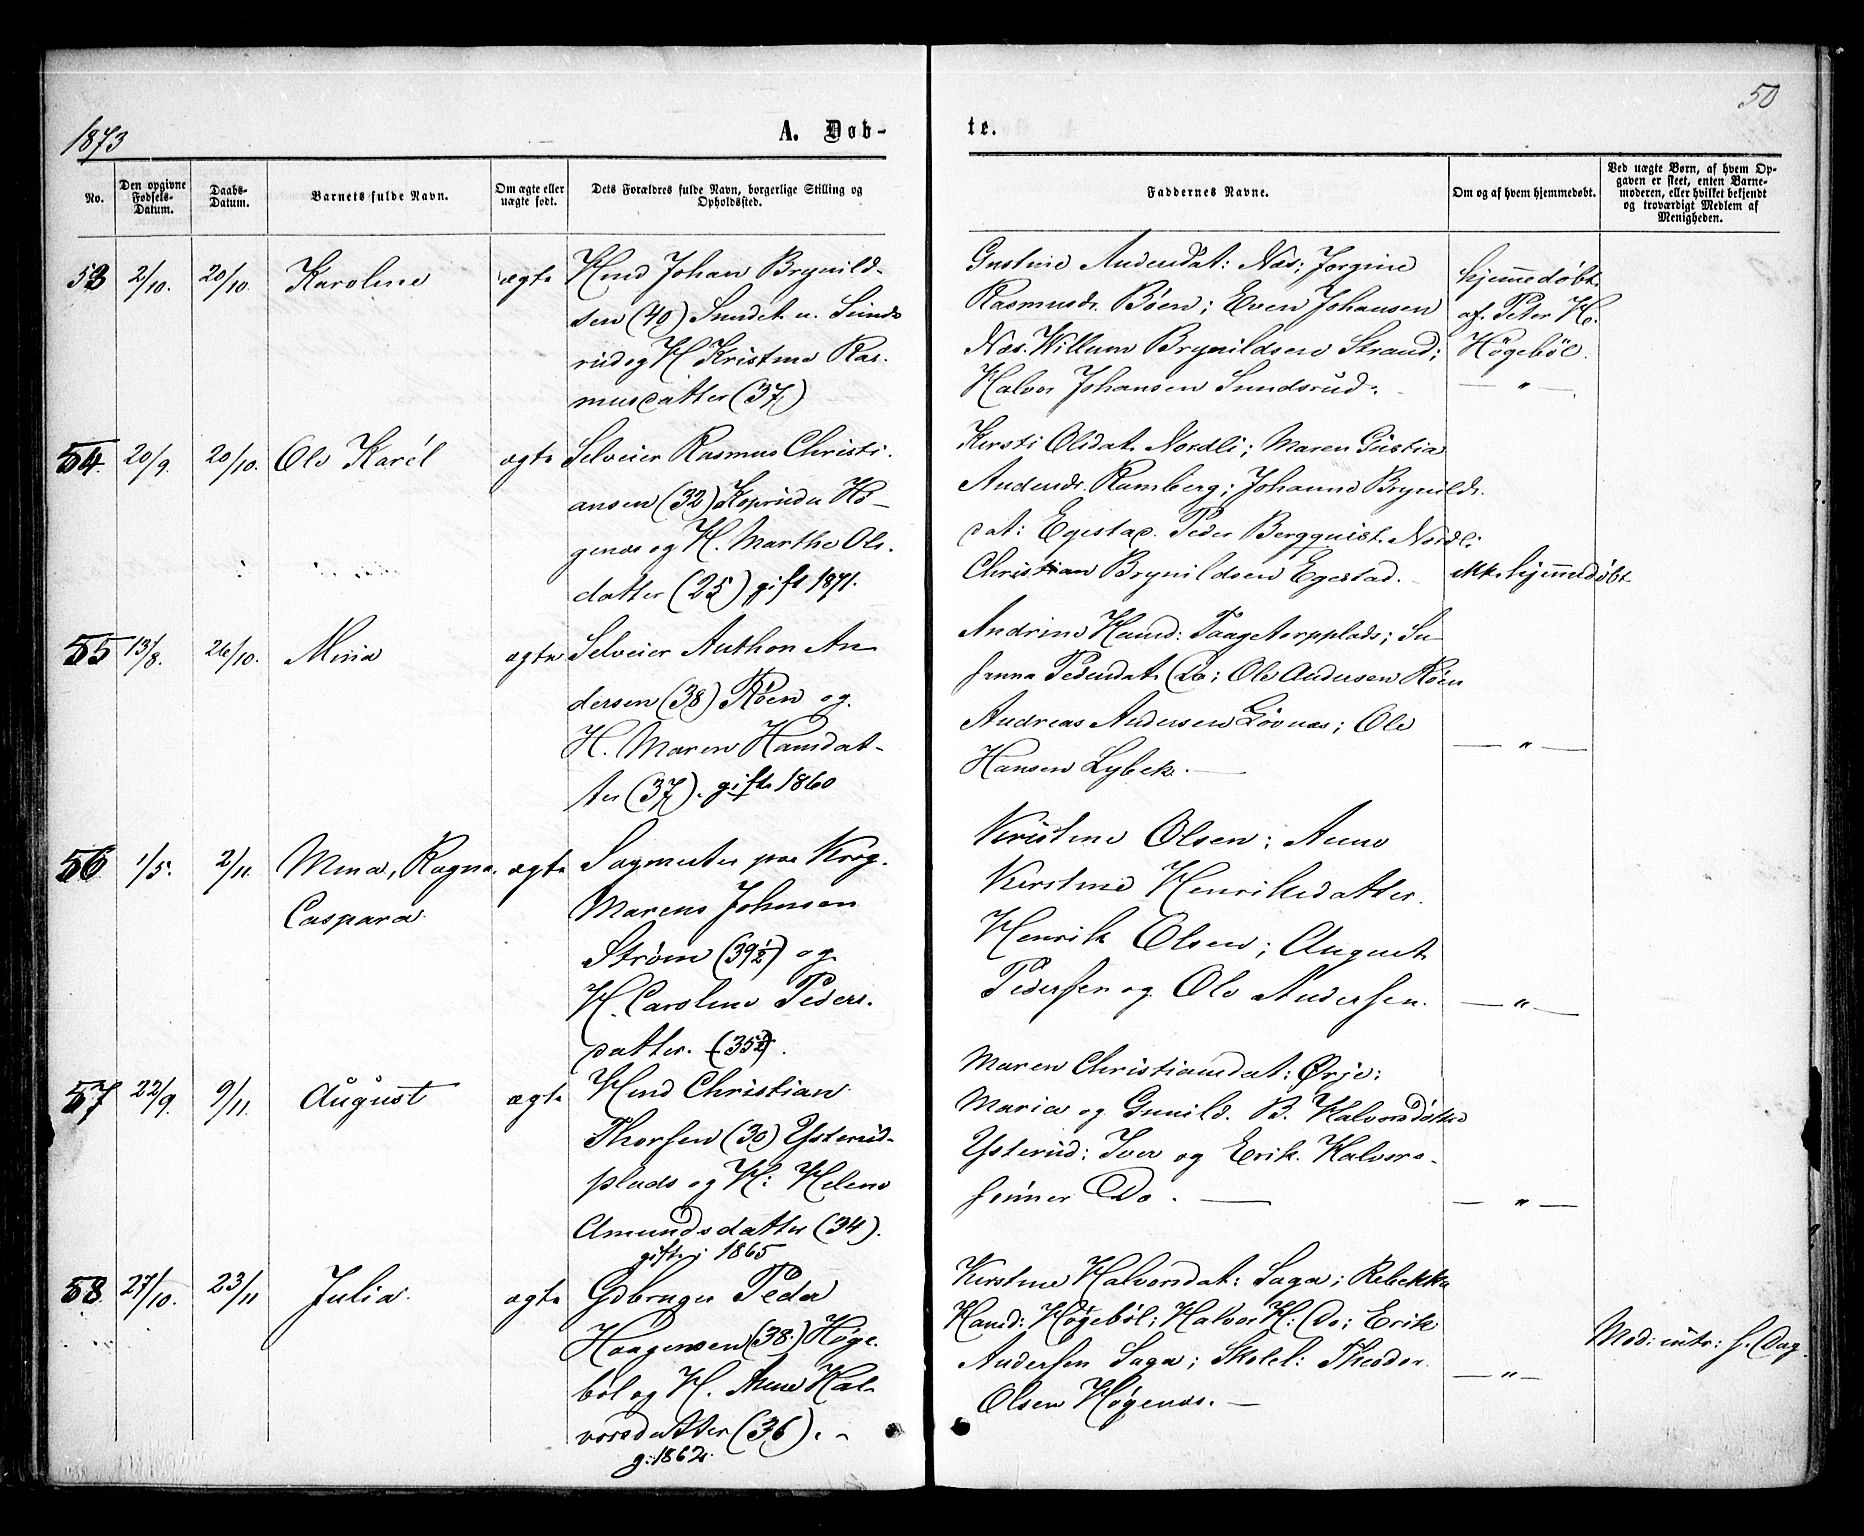 50
1873
A. Døb-
te.
No.
Den opgivne Fødsels-Datum.
Daabs-Datum.
Barnets fulde Navn.
Om ægte eller uægte født.
Dets Forældres fulde Navn, borgerlige Stilling og Opholdssted.
Faddernes Navne.
Om og af hvem hjemmedøbt.
Ved uægte Børn, af hvem Opgaven er skeet, enten Barnemoderen, eller hvilket bekjendt og troværdigt Medlem af Menigheden.
53 2/10. 20/10. Karoline ægte
Hmd Johan Brynild-
sen (40) Sundet u. Sunds
rud og H. Kristine Ras-
musdatter (37)
Gustine Andersdat: Næs; Jørgine
Rasmusdr. Bøen; Even Johansen
Næs. Willum Brynildsen Strand;
Halvor Johansen Sundsrud.
hjemmedøbt
af Peter H.
Høgebøl.
— " —
54. 20/9. 20/10. Ole Karél ægte
Selveier Rasmus Christi-
ansen (32) Hø-
genæs og H. Marthe Ols-
datter (25) gift 1871.
Kersti Olsdat. Nordli; Maren Gustia
Andersdr. Ramberg; Johanne Brynilds-
dat: Egestad. Peder Bergquist. Nordli
Christian Brynildsen Egestad.
ikke hjemmedøbt
55 13/8. 26/10. Mina ægte
Selveier Anthon An-
dersen (38) Røen og
H. Maren Hansdat-
ter (37). gifte 1860
Andrine Hansd: Taagetorpplads; Su-
sanna Pedersdat. Do; Ole Andersen Røen
Andreas Andersen Løvnæs; Ole
Hansen Lybek. —
— " —
56 1/5. 2/11. Mina, Ragna, ægte
Caspara
Sagmester paa Krog.
Marens Johnsen
Strøm (39½) og
H. Caroline Peders-
datter. (35½).
Kristine Olsen; Anne
Kerstine Henriksdatter.
Henrik Olsen; August
Pedersen og Ole Andersen.
— " —
57 22/9. 9/11. August ægte
Hmd Christian
Thorsen (30) Ysterud-
plads og H: Helene
Amundsdatter (34).
gifte i 1865
Maren Christiansdat: Ørje;
Maria og Gunild. B. Halvorsdøttre
Ysterud; Iver og Erik. Halvors-
sønner Do. —
— " —
58. 27/10. 23/11 Julia. ægte
Gdbruger Peder
Haagensen (38.) Høge-
bøl og H. Anne Hal-
vorsdatter (36). -
g: 1862.
Kerstine Halvorsdat: Saga; Rebekka
Hansd: Høgebøl; Halvor H: Do; Erik
Andersen Saga; Skolel: Theodor
Olsen Høgenæs. —
— " —
Mod: intr: s. Dag.